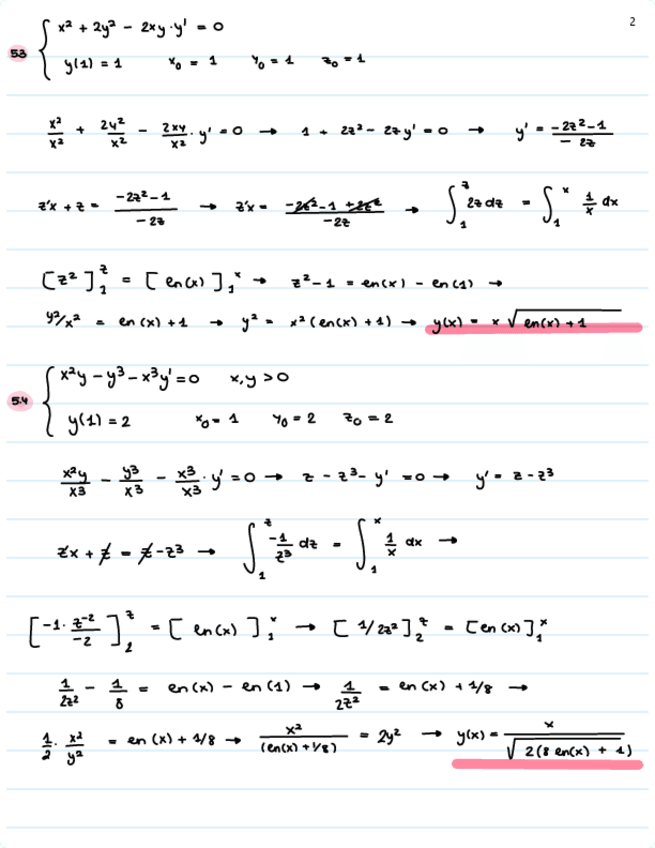 2
53 { x² + 2y² - 2xy·y' = 0
y(1) = 1 x₀ = 1 y₀ = 1 z₀ = 1
x²/x² + 2y²/x² - 2xy/x² · y' = 0 → 1 + 2z² - 2zy' = 0 → y' = (-2z²-1)/(-2z)
z'x + z = (-2z²-1)/(-2z) → z'x = (-2z²-1+2z²)/(-2z) → ∫₁ᶻ 2z dz = ∫₁ˣ 1/x dx
[z²]₁ᶻ = [en(x)]₁ˣ → z²-1 = en(x) - en(1) →
y²/x² = en(x)+1 → y² = x²(en(x)+1) → y(x) = x √(en(x)+1)
5.4 { x²y - y³ - x³y' = 0 x,y > 0
y(1) = 2 x₀ = 1 y₀ = 2 z₀ = 2
x²y/x³ - y³/x³ - x³/x³ · y' = 0 → z - z³ - y' = 0 → y' = z - z³
z'x + z = z - z³ → ∫₁ᶻ -1/z³ dz = ∫₁ˣ 1/x dx →
[-1 · z⁻²/-2]₂ᶻ = [en(x)]₁ˣ → [1/2z²]₂ᶻ = [en(x)]₁ˣ
1/2z² - 1/8 = en(x) - en(1) → 1/2z² = en(x) + 1/8 →
1/2 · x²/y² = en(x) + 1/8 → x²/(en(x)+1/8) = 2y² → y(x) = x/√(2(8 en(x) + 1))